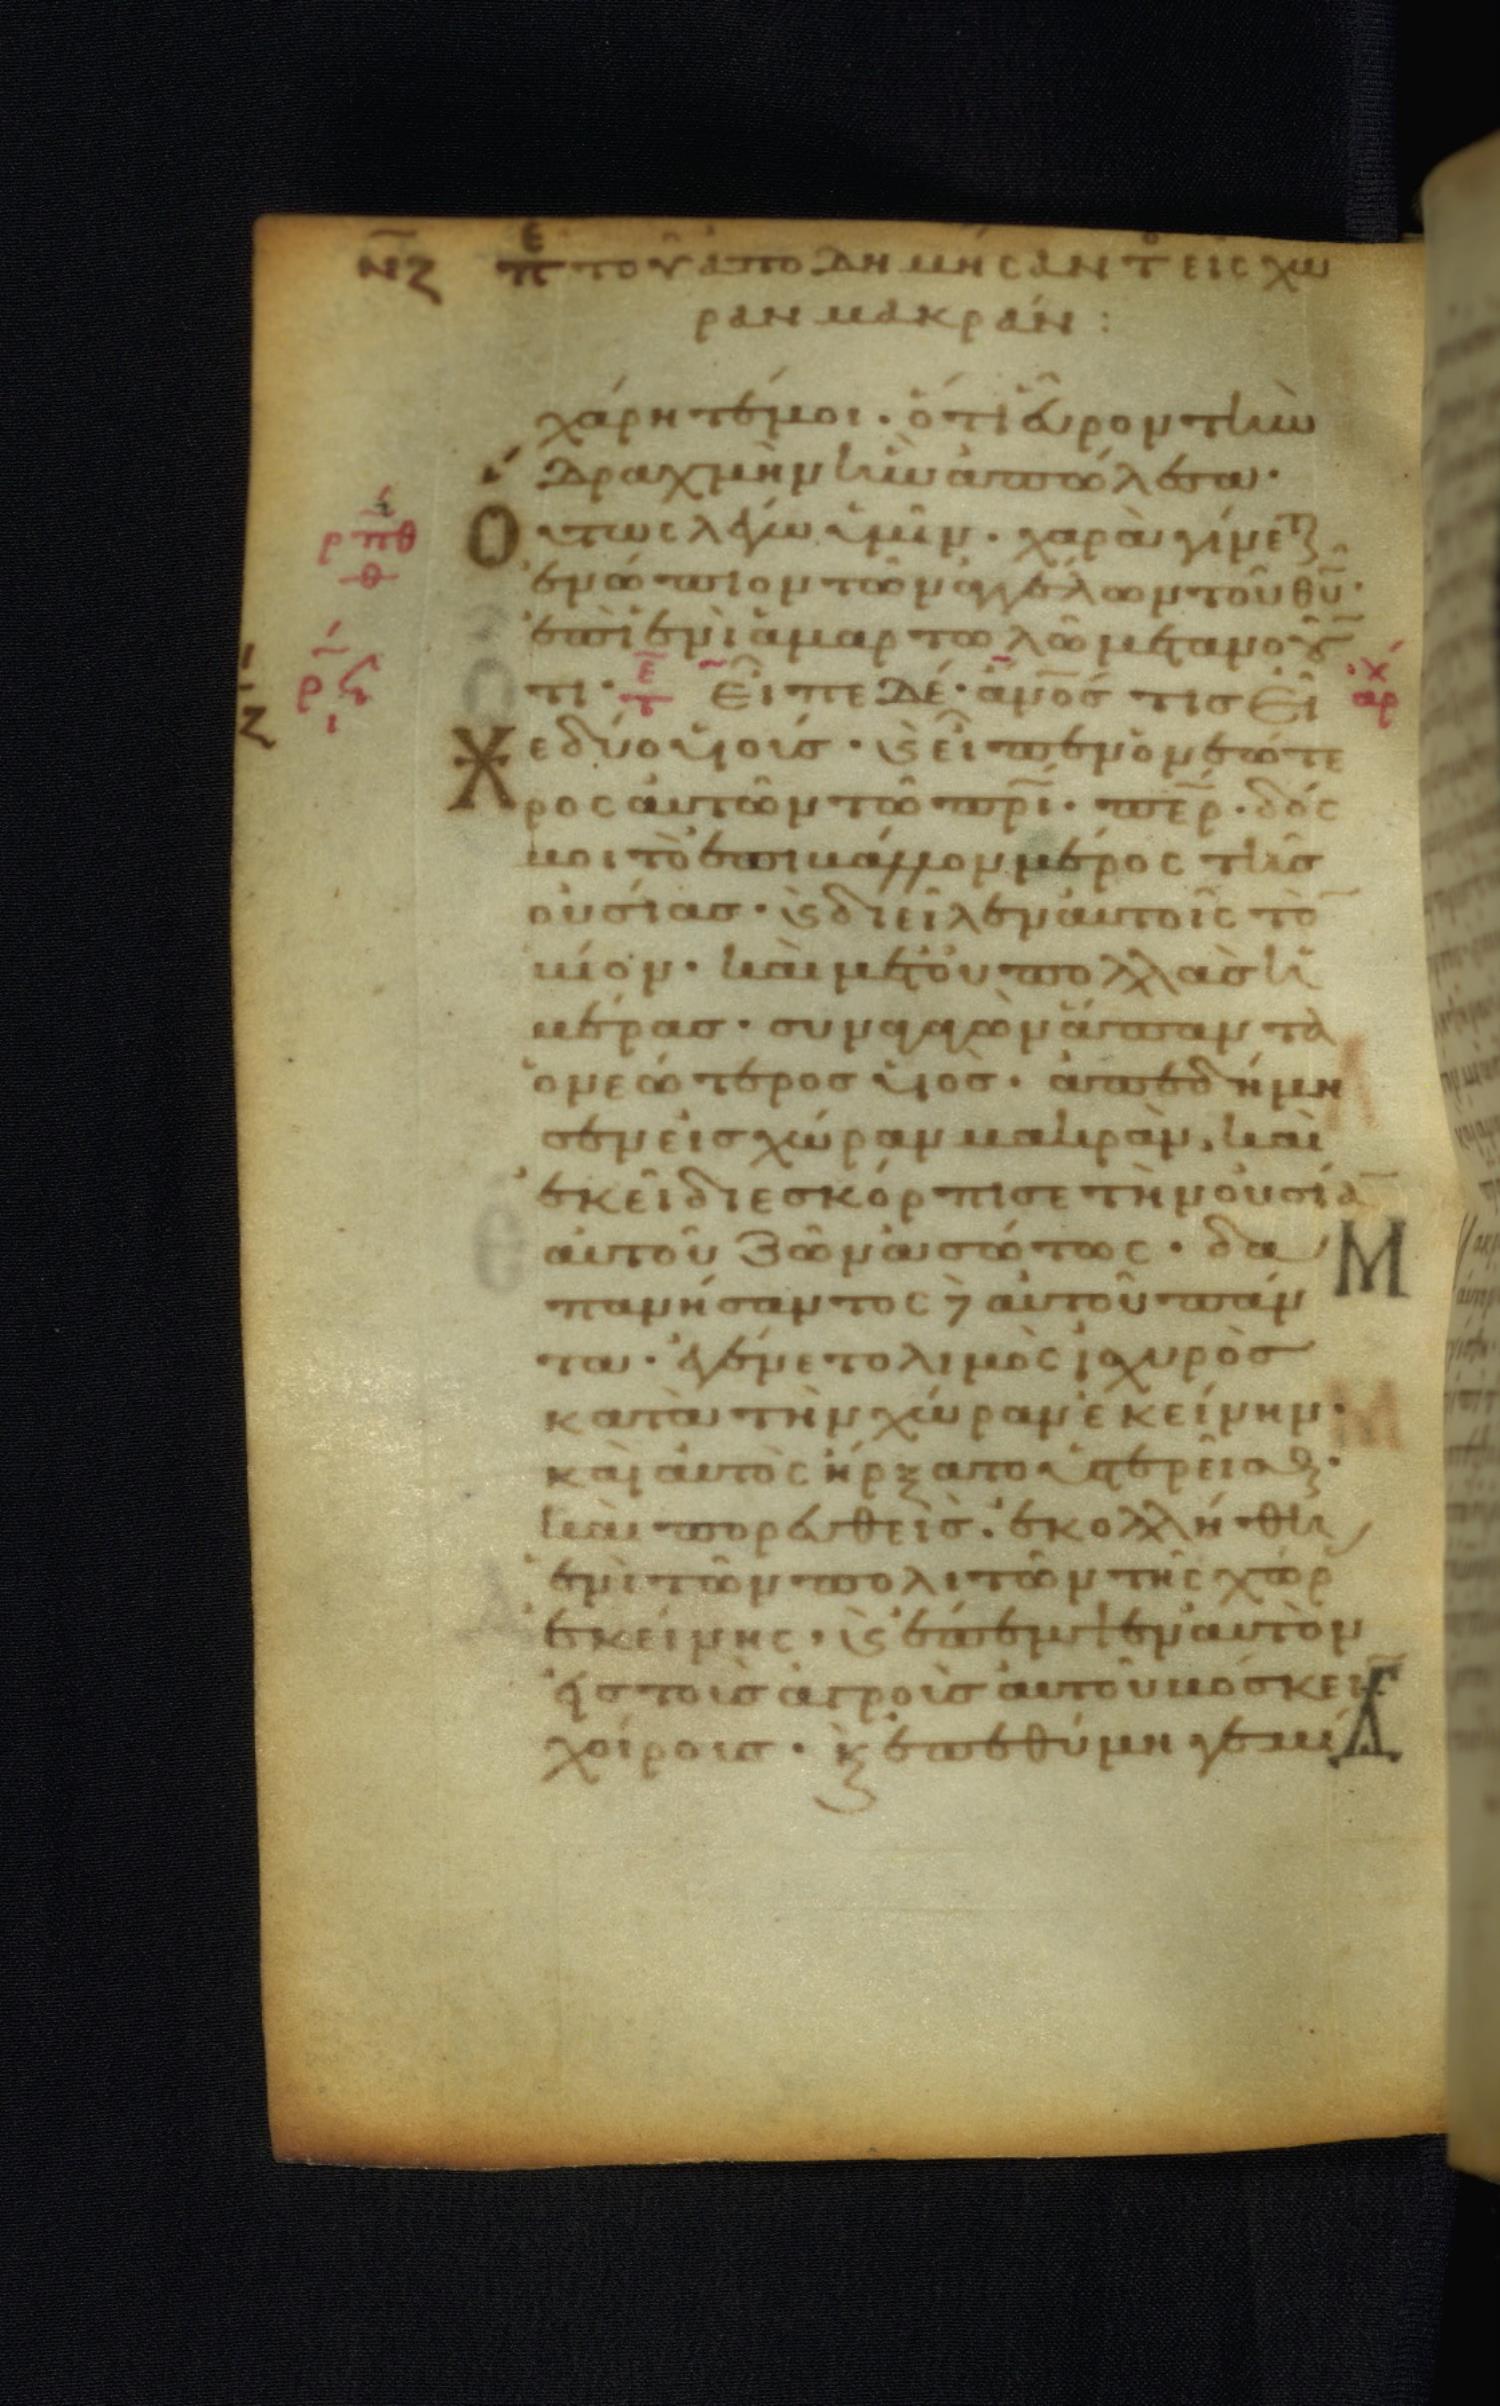 ν̅ζ πε τοῦ ἀποδημήσαντ εἰς χώ
ραν μακράν :
χάρητέ μοι · ὅτι εὗρον τὴν
δραχμὴν ἣν ἀπώλεσα ·
ρπθ θ Οὕτως λέγω ὑμῖν · χαρὰ γίνεται
ἐνώπιον τῶν ἀγγέλων τοῦ θ̅υ̅ ·
ἐπὶ ἑνὶ ἁμαρτωλῷ μετανοοῦ̅
ρϟ ι τι · τε Εἶπε δέ · ἄν̅ο̅ς τις εἶ αρχ
Χε δύο υἱούς · ϗ εἶπεν ὁ νεώτε
ρος αὐτῶν τῷ π̅ρ̅ι̅ · π̅ε̅ρ̅ · δός
μοι τὸ ἐπιβάλλον μέρος τῆς
οὐσίας · ϗ διεῖλεν αὐτοῖς τὸ̅
βίον · καὶ μετ οὐ πολλὰς ἡ
μέρας · συναγαγὼν ἅπαντα
ὁ νεώτερος υἱός · ἀπεδήμη
σεν εἰς χώραν μακρὰν, καὶ
ἐκεῖ διεσκόρπισε τὴν οὐσία̅
αὐτοῦ ζῶν ἀσώτως · δα
Μ
πανήσαντος δὲ αὐτοῦ πάν
τα · ἐγένετο λιμὸς ἰσχυρὸς
κατὰ τὴν χώραν ἐκείνην ·
καὶ αὐτὸς ἤρξατο ὑστερεῖσθαι ·
καὶ πορευθεὶς · ἐκολλήθη
ἑνὶ τῶν πολιτῶν τῆς χώρ
ἐκείνης · ϗ ἔπεμψεν αὐτὸν
εἰς τοὺς ἀγροὺς αὐτοῦ βόσκει̅
Δ
χοίρους · ϗ ἐπεθύμη γεμί